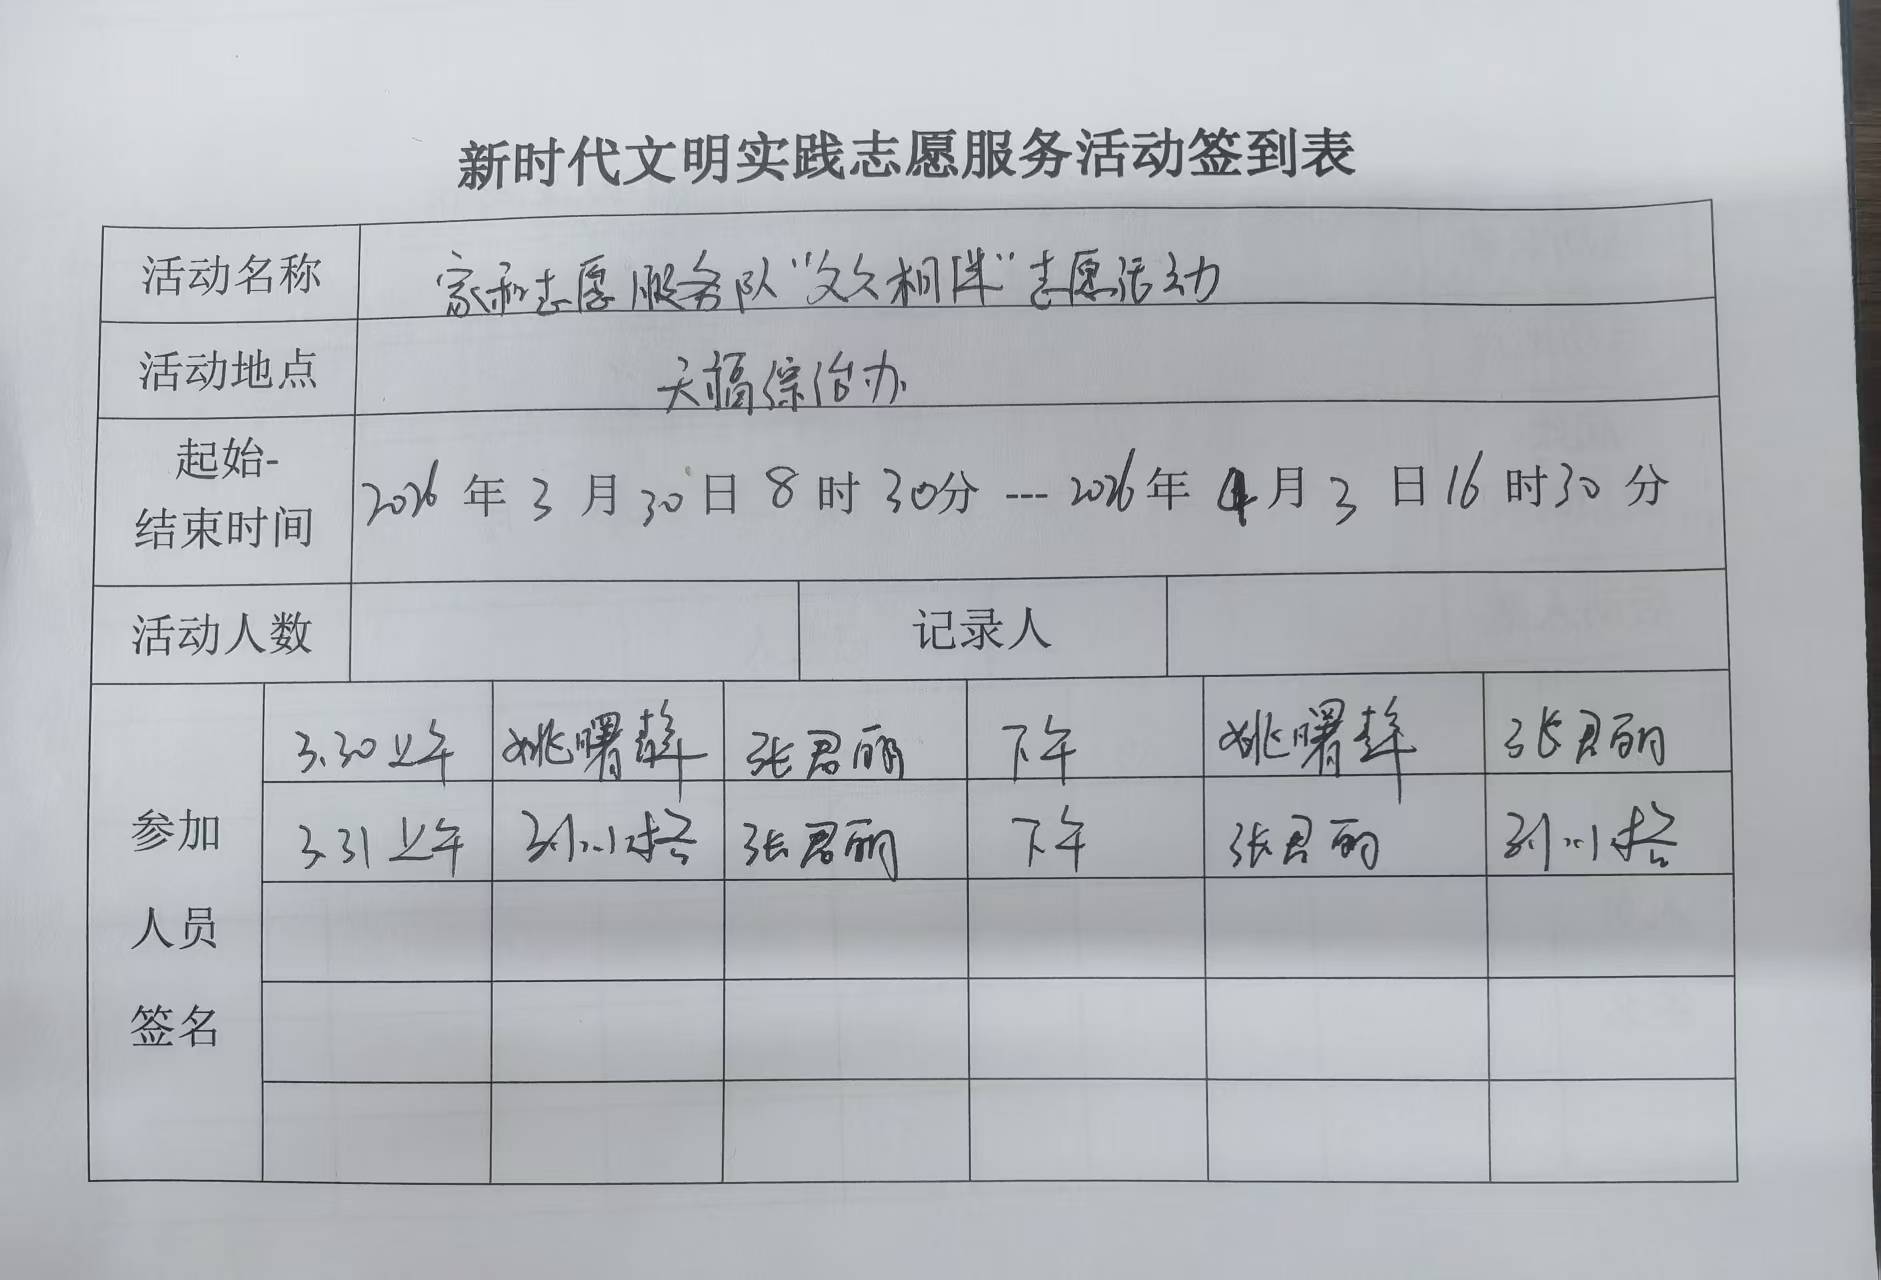 新时代文明实践志愿服务活动签到表
活动名称 家和志愿服务队"文久相伴"志愿活动
活动地点 天福综治办
起始-
结束时间 2026年3月30日8时30分---2026年4月3日16时30分
活动人数 记录人
参加
人员
签名
3.30上午 姚曙 张君丽 下午 姚曙 张君丽
3.31上午 张君丽 下午 张君丽